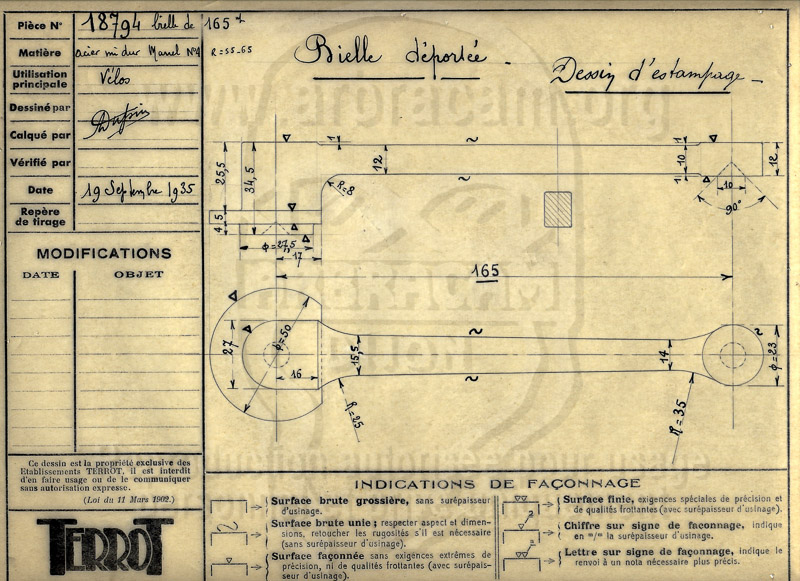 Pièce N° 18794 bielle de 165 m/m
Matière acier mi dur Marrel N°4 R=55-65
Utilisation
principale Vélos
Dessiné par
Calqué par
Vérifié par
Date 19 Septembre 1935
Repère
de tirage
MODIFICATIONS
DATE OBJET
Ce dessin est la propriété exclusive des
Etablissements TERROT, il est interdit
d'en faire usage ou de le communiquer
sans autorisation expresse.
(Loi du 11 Mars 1902.)
TERROT
Bielle déportée.
Dessin d'estampage
25,5
34,5
4,5
1
12
R=8
1
10
1
12
10
90°
φ=27,5
17
165
27
φ=50
16
15,5
R=25
14
R=35
φ=23
INDICATIONS DE FAÇONNAGE
Surface brute grossière, sans surépaisseur
d'usinage.
Surface brute unie; respecter aspect et dimen-
sions, retoucher les rugosités s'il est nécessaire
(sans surépaisseur d'usinage).
Surface façonnée sans exigences extrêmes de
précision, ni de qualités frottantes (avec surépais-
seur d'usinage).
Surface finie, exigences spéciales de précision et
de qualités frottantes (avec surépaisseur d'usinage).
Chiffre sur signe de façonnage, indique
en m/m la surépaisseur d'usinage.
Lettre sur signe de façonnage, indique le
renvoi à un nota nécessaire plus précis.
www.amgracam.org